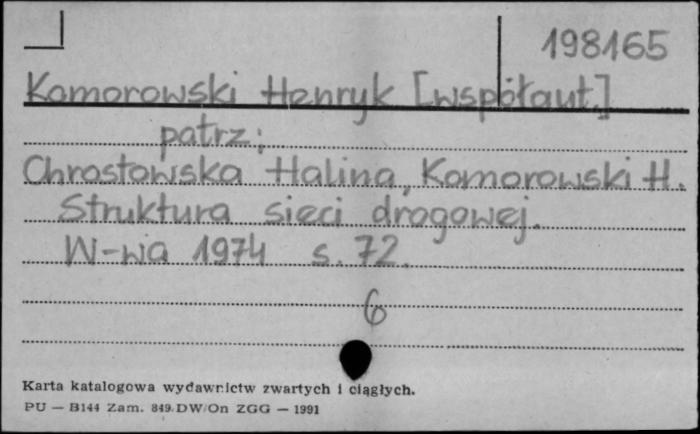 198165
Komorowski Henryk [współaut.]
patrz:
Chrostowska Halina, Komorowski H.
Struktura sieci drogowej.
W-wa 1974 s. 72.
6
Karta katalogowa wydawnictw zwartych i ciągłych.
PU — B144 Zam. 849. DW/On ZGG — 1991